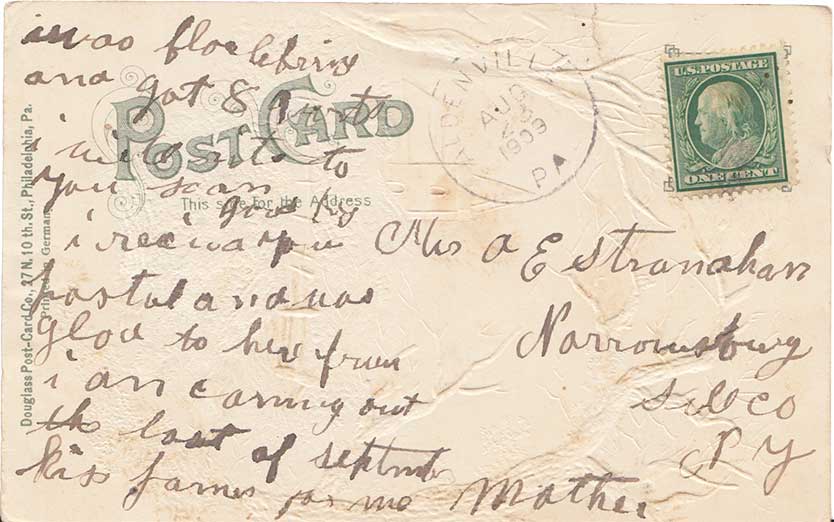 and got 8
to
you soon
good by
i recivd you
postul and was
glad to her from
i am coming out
the last of septmber
kiss James for me Mother
POST CARD
This side for the Address
Douglass Post-Card Co., 27 N. 10 th. St., Philadelphia, Pa.
Printed in Germany
ALDENVILLE
AUG
1909
PA
U.S. POSTAGE
ONE CENT
Mrs A E Stranahan
Narrowsburg
Sul co
N Y